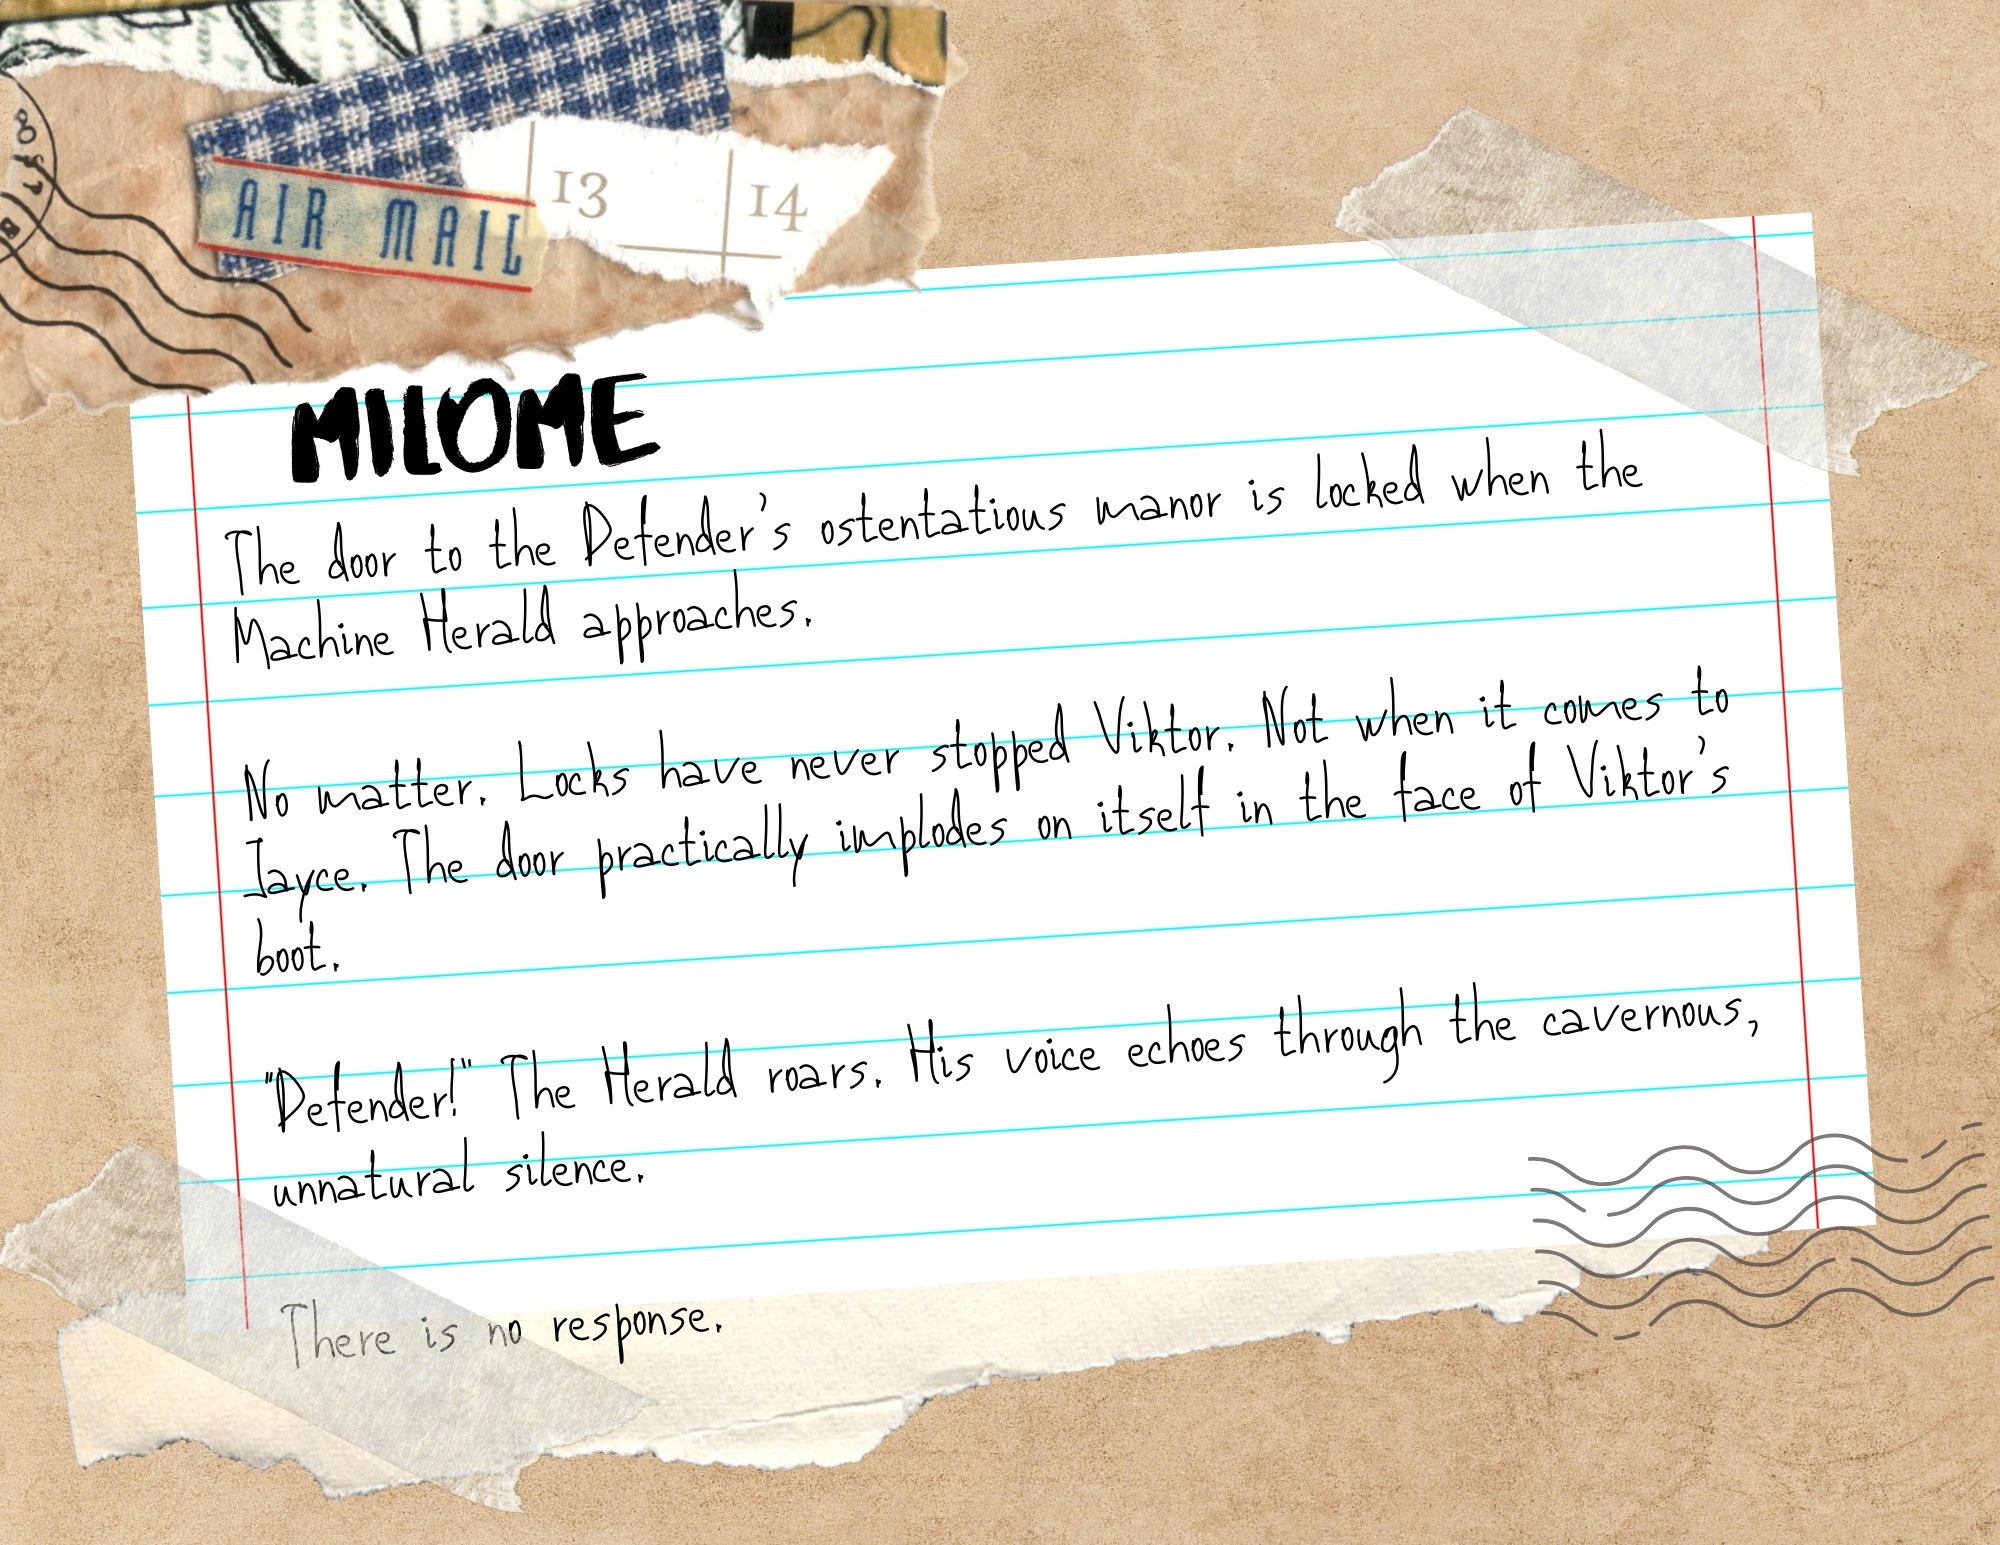 AIR MAIL
13 14
MILOME
The door to the Defender's ostentatious manor is locked when the
Machine Herald approaches.
No matter. Locks have never stopped Viktor. Not when it comes to
Jayce. The door practically implodes on itself in the face of Viktor's
boot.
"Defender!" The Herald roars. His voice echoes through the cavernous,
unnatural silence.
There is no response.